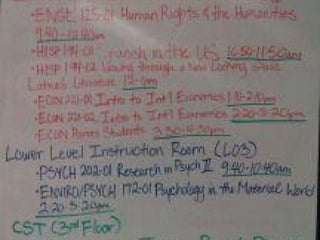 •ENGL 125-01 Human Rights & the Humanities
9:40-10:40am
•HISP 191-01 Spanish in the US 10:50-11:50am
•HISP 191-02 through a New Looking Glass
Literature 12-1pm
•ECON 221-01 Intro to Int'l Economics 1:10-2:10pm
•ECON 221-02 Intro to Int'l Economics 2:20-3:20pm
•ECON Honors Students 3:30-4:30pm
Lower Level Instruction Room (L03)
•PSYCH 202-01 Research in Psych II 9:40-10:40am
•ENVIRO/PSYCH 172-01 Psychology in the Material World
2:20-3:20pm
CST (3rd Floor)